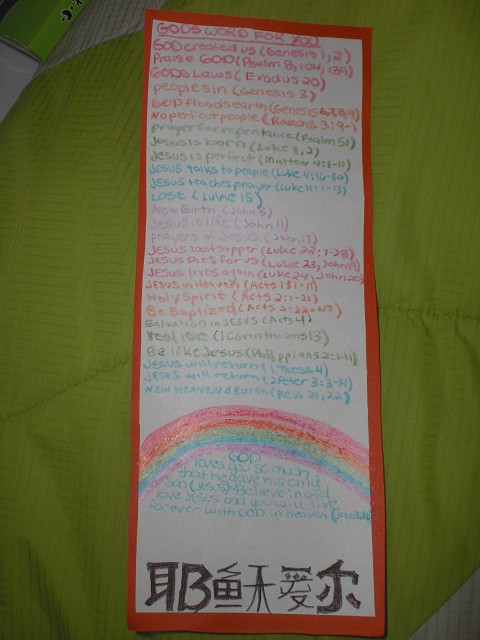 GODS WORD FOR YOU
GOD created us (Genesis 1, 2)
Praise GOD (Psalm 8, 104, 139)
GODS Laws (Exodus 20)
people sin (Genesis 3)
GOD floods earth (Genesis 6,7,8,9)
No perfect people (Romans 3:9-)
prayer for repentance (Psalm 51)
Jesus is born (Luke 1, 2)
Jesus is perfect (Mattew 4:1-11)
JESUS talks to people (Luke 4:16-30)
JESUS teaches prayer (Luke 11:1-13)
LOSE (Luke 15)
New Birth (John 3)
Jesus is life (John 11)
prayers of Jesus (John 17)
JESUS last supper (Luke 22:7-28)
JESUS Dies for us (Luke 23, John 19)
JESUS lives again (Luke 24, John 20)
JESUS in Heaven (Acts 1:1-11)
Holy Spirit (Acts 2:1-21)
Be Baptized (Acts 2:22-47)
Salvation in JESUS (Acts 4)
real love (1 Corinthians 13)
Be like Jesus (Philippians 2:1-11)
JESUS will return (1 Thess 4)
JESUS will return (2 Peter 3:3-14)
NEW HEAVEN & Earth (Rev. 21, 22)
GOD
loves you so much
that he gave his only
son (JESUS). Believe in and
love JESUS and you will live
forever with GOD in heaven (John 3:16)
耶稣爱尔